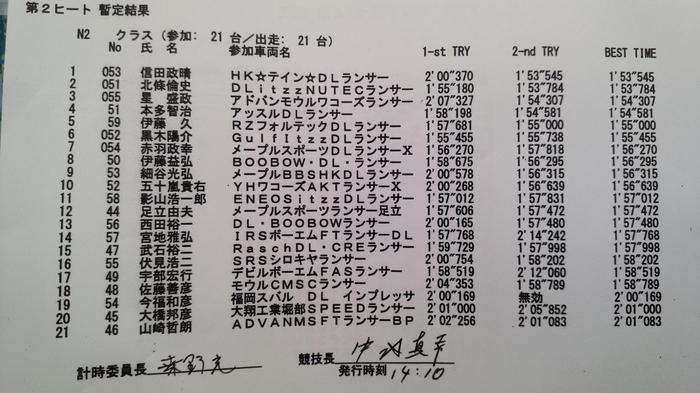 第２ヒート 暫定結果
N2 クラス（参加： 21 台／出走： 21 台）
No 氏 名 参加車両名 1-st TRY 2-nd TRY BEST TIME
1 053 信田政晴 ＨＫ☆テイン☆ＤＬランサー 2'00"370 1'53"545 1'53"545
2 051 北條倫史 ＤＬｉｔｚｚＮＵＴＥＣランサー 1'55"180 1'53"784 1'53"784
3 055 星 盛政 アドバンモウルワコーズランサー 2'07"327 1'54"307 1'54"307
4 51 本多智治 アッスルＤＬランサー 1'58"198 1'54"581 1'54"581
5 59 伊藤 久 ＲＺフォルテックＤＬランサー 1'57"681 1'55"000 1'55"000
6 052 黒木陽介 ＧｕｌｆｉｔｚｚＤＬランサー 1'55"455 1'55"738 1'55"455
7 054 赤羽政幸 メープルスポーツＤＬランサーＸ 1'56"270 1'57"818 1'56"270
8 50 伊藤益弘 ＢＯＯＢＯＷ・ＤＬ・ランサー 1'58"675 1'56"295 1'56"295
9 53 細谷光弘 メープルＢＢＳＨＫＤＬランサー 2'00"578 1'56"315 1'56"315
10 52 五十嵐貴右 ＹＨワコーズＡＫＴランサーＸ 2'00"268 1'56"639 1'56"639
11 58 影山浩一郎 ＥＮＥＯＳｉｔｚｚＤＬランサー 1'57"012 1'57"831 1'57"012
12 44 足立由夫 メープルスポーツランサー足立 1'57"606 1'57"472 1'57"472
13 56 西田裕一 ＤＬ・ＢＯＯＢＯＷランサー 2'00"165 1'57"480 1'57"480
14 57 宮地雅弘 ＩＲＳボーエムＦＴランサーＤＬ 1'57"768 2'14"242 1'57"768
15 47 武石裕二 ＲａｓｃｈＤＬ・ＣＲＥランサー 1'59"729 1'57"998 1'57"998
16 55 伏見浩二 ＳＲＳシロキヤランサー 2'00"754 1'58"202 1'58"202
17 49 宇部宏行 デビルボーエムＦＡＳランサー 1'58"519 2'12"060 1'58"519
18 48 佐藤善彦 モウルＣＭＳＣランサー 2'04"353 1'58"789 1'58"789
19 54 今福和彦 福岡スバル ＤＬ インプレッサ 2'00"169 無効 2'00"169
20 45 大橋邦彦 大翔工業堀部ＳＰＥＥＤランサー 2'05"852
21 46 山崎哲朗 ＡＤＶＡＮＭＳＦＴランサーＢＰ 2'02"256 2'01"083 2'01"083
計時委員長 競技長
発行時刻 14:10